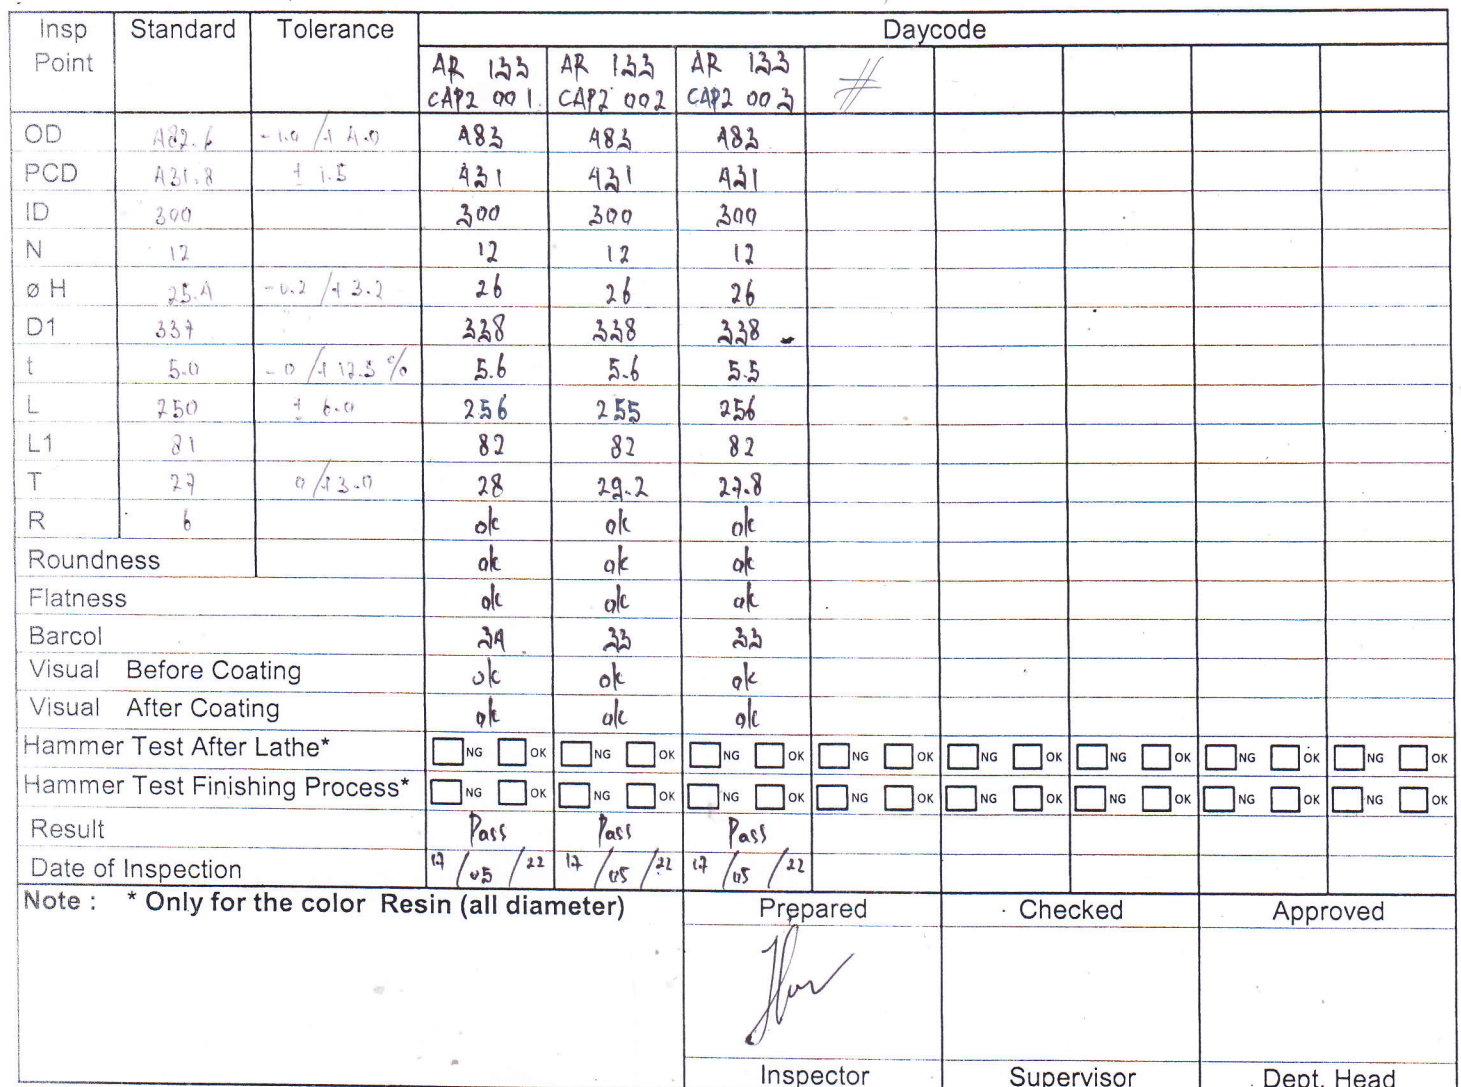 Insp Point Standard Tolerance Daycode
AR 133 CAP2 001. AR 133 CAP2 002 AR 133 CAP2 003 #
OD 482.6 -1.0 / +4.0 483 483 483
PCD 431.8 ± 1.5 431 431 431
ID 300 300 300 300
N 12 12 12 12
ø H 25.4 -0.2 / +3.2 26 26 26
D1 337 338 338 338
t 5.0 -0 / +12.5 % 5.6 5.6 5.5
L 250 ± 6.0 256 255 256
L1 81 82 82 82
T 27 0 / +3.0 28 29.2 27.8
R 6 ok ok ok
Roundness ok ok ok
Flatness ok ok ok
Barcol 34 33 33
Visual Before Coating ok ok ok
Visual After Coating ok ok ok
Hammer Test After Lathe* NG OK NG OK NG OK NG OK NG OK NG OK NG OK NG OK
Hammer Test Finishing Process* NG OK NG OK NG OK NG OK NG OK NG OK NG OK NG OK
Result Pass Pass Pass
Date of Inspection 17/05/22 17/05/22 17/05/22
Note : * Only for the color Resin (all diameter) Prepared Checked Approved
Inspector Supervisor Dept. Head